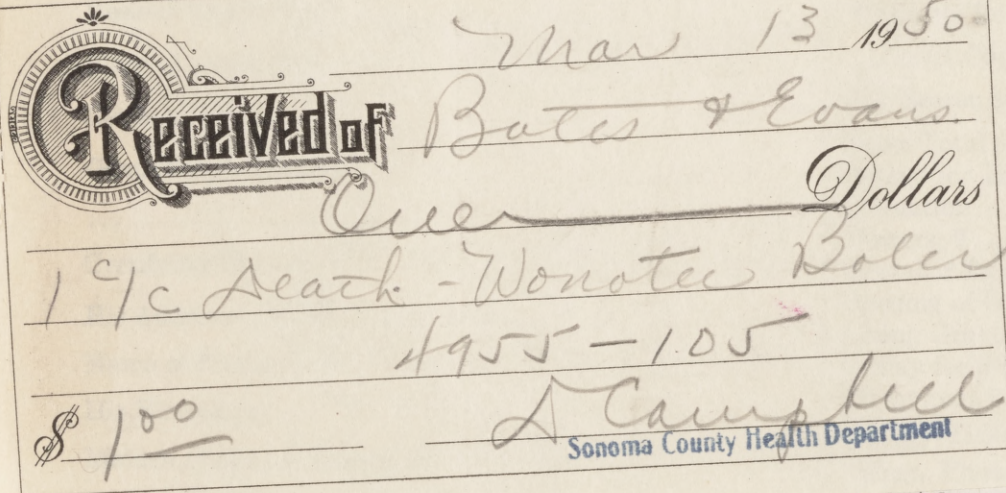 Mar 13 1950
Received of Bates & Evans
One Dollars
1 c/c Death - Wonotee Boler
4955-105
$ 1 00 D Campbell
Sonoma County Health Department